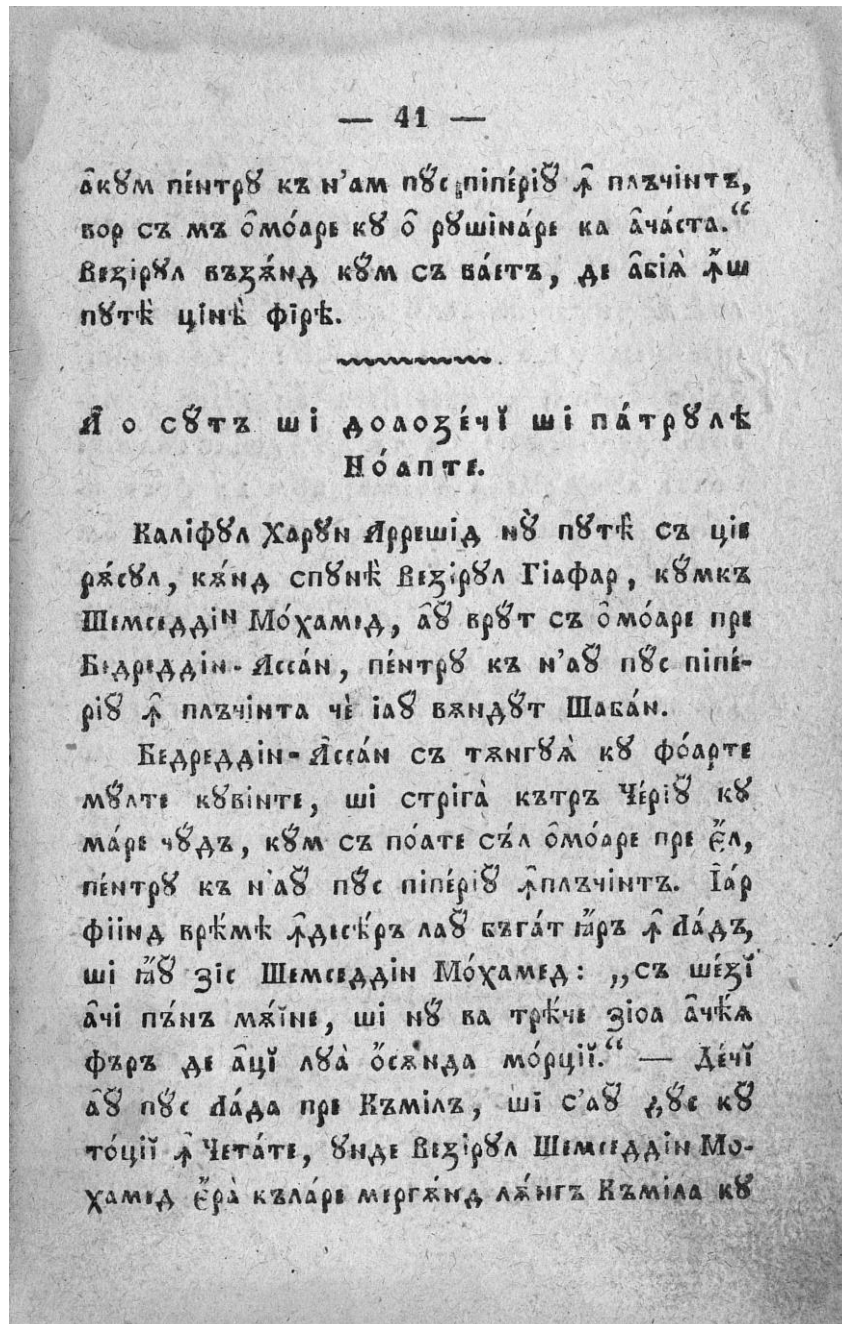 — 41 —
а҆кꙋм пе́нтрꙋ къ н’ам пꙋ́с піпе́рїꙋ̆ ꙟ҆ плъчінтъ,
вор съ мъ о҆мо́аре кꙋ о҆ рꙋшіна́ре ка а҆ча́ста.“
Везі́рꙋл възѫ́нд кꙋ́м съ ва́етъ, де а҆біѧ̀ ꙟ҆́ш
пꙋтѣ̀ цінѐ фірѣ.
Ꙟ҆ о сꙋ́тъ ші доаозе́чй ші па́трꙋлѣ
Но́апте.
Каліфꙋл Харꙋн Аррешід нꙋ̀ пꙋтѣ̀ съ ціе
рѫ́сꙋл, кѫ́нд спꙋнѣ̀ Везі́рꙋл Гіафар, кꙋ́мкъ
Шемседді́н Мо́хамед, а҆ꙋ врꙋ́т съ о҆мо́аре пре
Бедреддін-Асса́н, пе́нтрꙋ къ н’аꙋ̆ пꙋ́с піпе́-
рїꙋ̆ ꙟ҆ плъчі́нта чѐ іаꙋ̆ вѫндꙋ́т Шаба́н.
Бедреддін-А҆сса́н съ тѫнгꙋѧ̀ кꙋ фо́арте
мꙋ́лте кꙋві́нте, ші стріга̀ кътръ Че́рїꙋ̆ кꙋ
ма́ре чꙋ́дъ, кꙋ́м съ по́ате съ́л о҆мо́аре пре є҆́л,
пе́нтрꙋ къ н’аꙋ̆ пꙋ́с піпе́рїꙋ̆ ꙟ҆плъчі́нтъ. І҆а́р
фіінд врѣ́мѣ ꙟ҆десѣ́ръ лаꙋ̆ бъга́т ꙗ҆́ръ ꙟ҆ Ла́дъ,
ші ꙗ҆́ꙋ̆ зіс Шемседдін Мо́хамед: „съ ше́зй
а҆чі пъ́нъ мѫ́їне, ші нꙋ́ ва трѣ́че зіоа а҆чѣ́ѧ
фъръ де а҆цй лꙋа̀ о҆́сѫнда мо́рції.“ — Де́чй
а҆ꙋ̆ пꙋ́с Ла́да пре Къмілъ, ші с’аꙋ̆ дꙋ́с кꙋ
то́ції ꙟ҆ Чета́те, ꙋнде Везі́рꙋл Шемседдін Мо-
хамед є҆ра̀ къла́ре мергѫ́нд лѫ́нгъ Къміла кꙋ